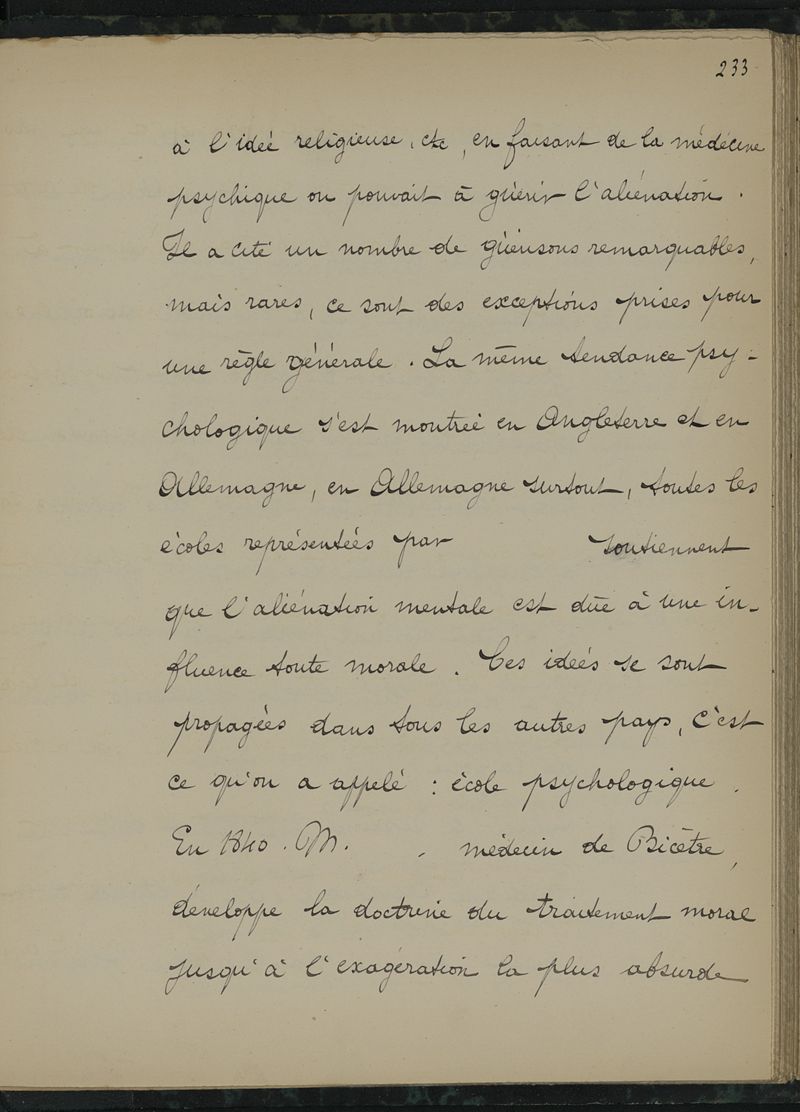 233
à l'idée religieuse, etc, en faisant de la médecine
psychique on pouvait à guérir l'aliénation.
Il a cité un nombre de guérisons remarquables,
mais rares, ce sont des exceptions prises pour
une règle générale. La même tendance psy-
chologique s'est montrée en Angleterre et en
Allemagne, en Allemagne surtout, toutes les
écoles représentées par soutiennent
que l'aliénation mentale est dûe à une in-
fluence toute morale. Ces idées se sont
propagées dans tous les autres pays, c'est
ce qu'on a appelé : école psychologique.
En 1840. M. . médecin de Bicêtre,
développe la doctrine du traitement moral
jusqu'à l'exagération la plus absurde